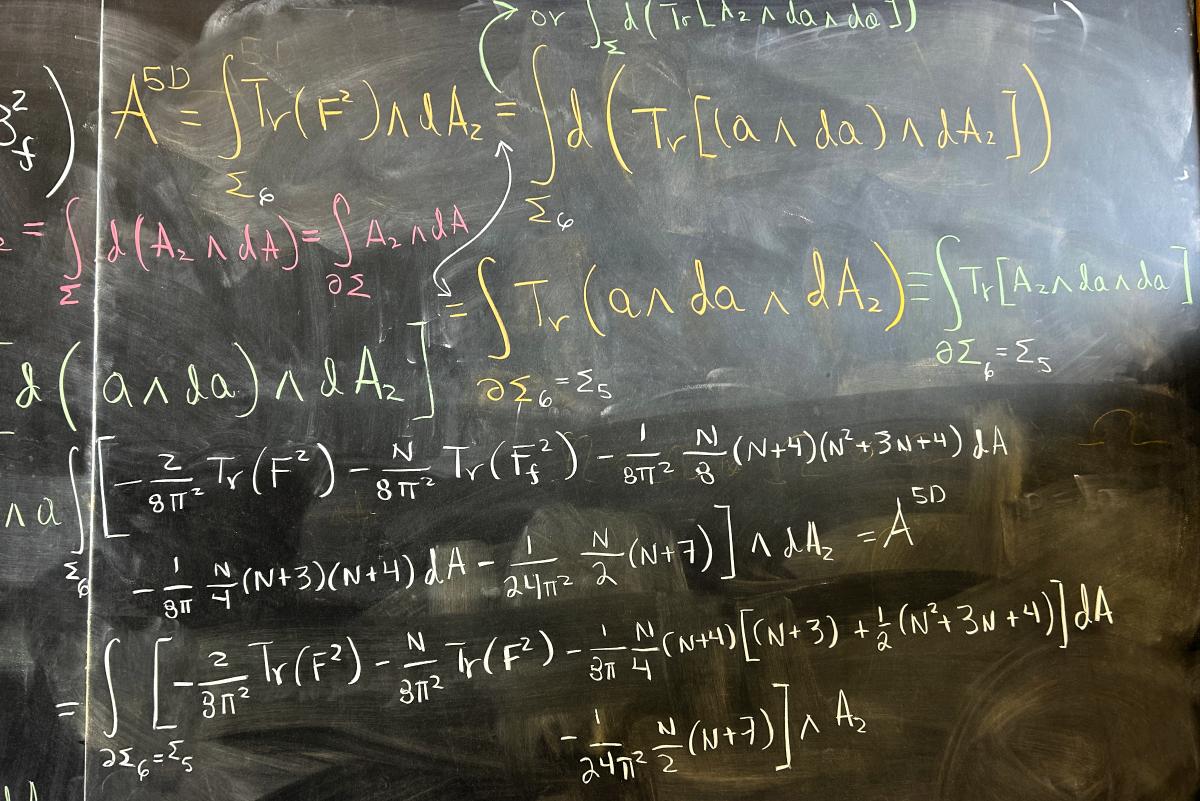 or ∫_Σ d(Tr[A₂ ∧ da ∧ da])
A^{5D} = ∫_{Σ₆} Tr(F²) ∧ dA₂ = ∫_{Σ₆} d(Tr[(a ∧ da) ∧ dA₂])
= ∫_Σ d(A₂ ∧ dA) = ∫_{∂Σ} A₂ ∧ dA
= ∫_{∂Σ₆=Σ₅} Tr(a ∧ da ∧ dA₂) = ∫_{∂Σ₆=Σ₅} Tr[A₂ ∧ da ∧ da]
d(a ∧ da) ∧ dA₂]
∧ a
∫_{Σ₆} [-2/8π² Tr(F²) - N/8π² Tr(F_f²) - 1/8π² N/8 (N+4)(N²+3N+4) dA
- 1/8π N/4 (N+3)(N+4) dA - 1/24π² N/2 (N+7)] ∧ dA₂ = A^{5D}
= ∫_{∂Σ₆=Σ₅} [-2/8π² Tr(F²) - N/8π² Tr(F²) - 1/8π N/4 (N+4)[(N+3) + 1/2 (N²+3N+4)] dA
- 1/24π² N/2 (N+7)] ∧ A₂